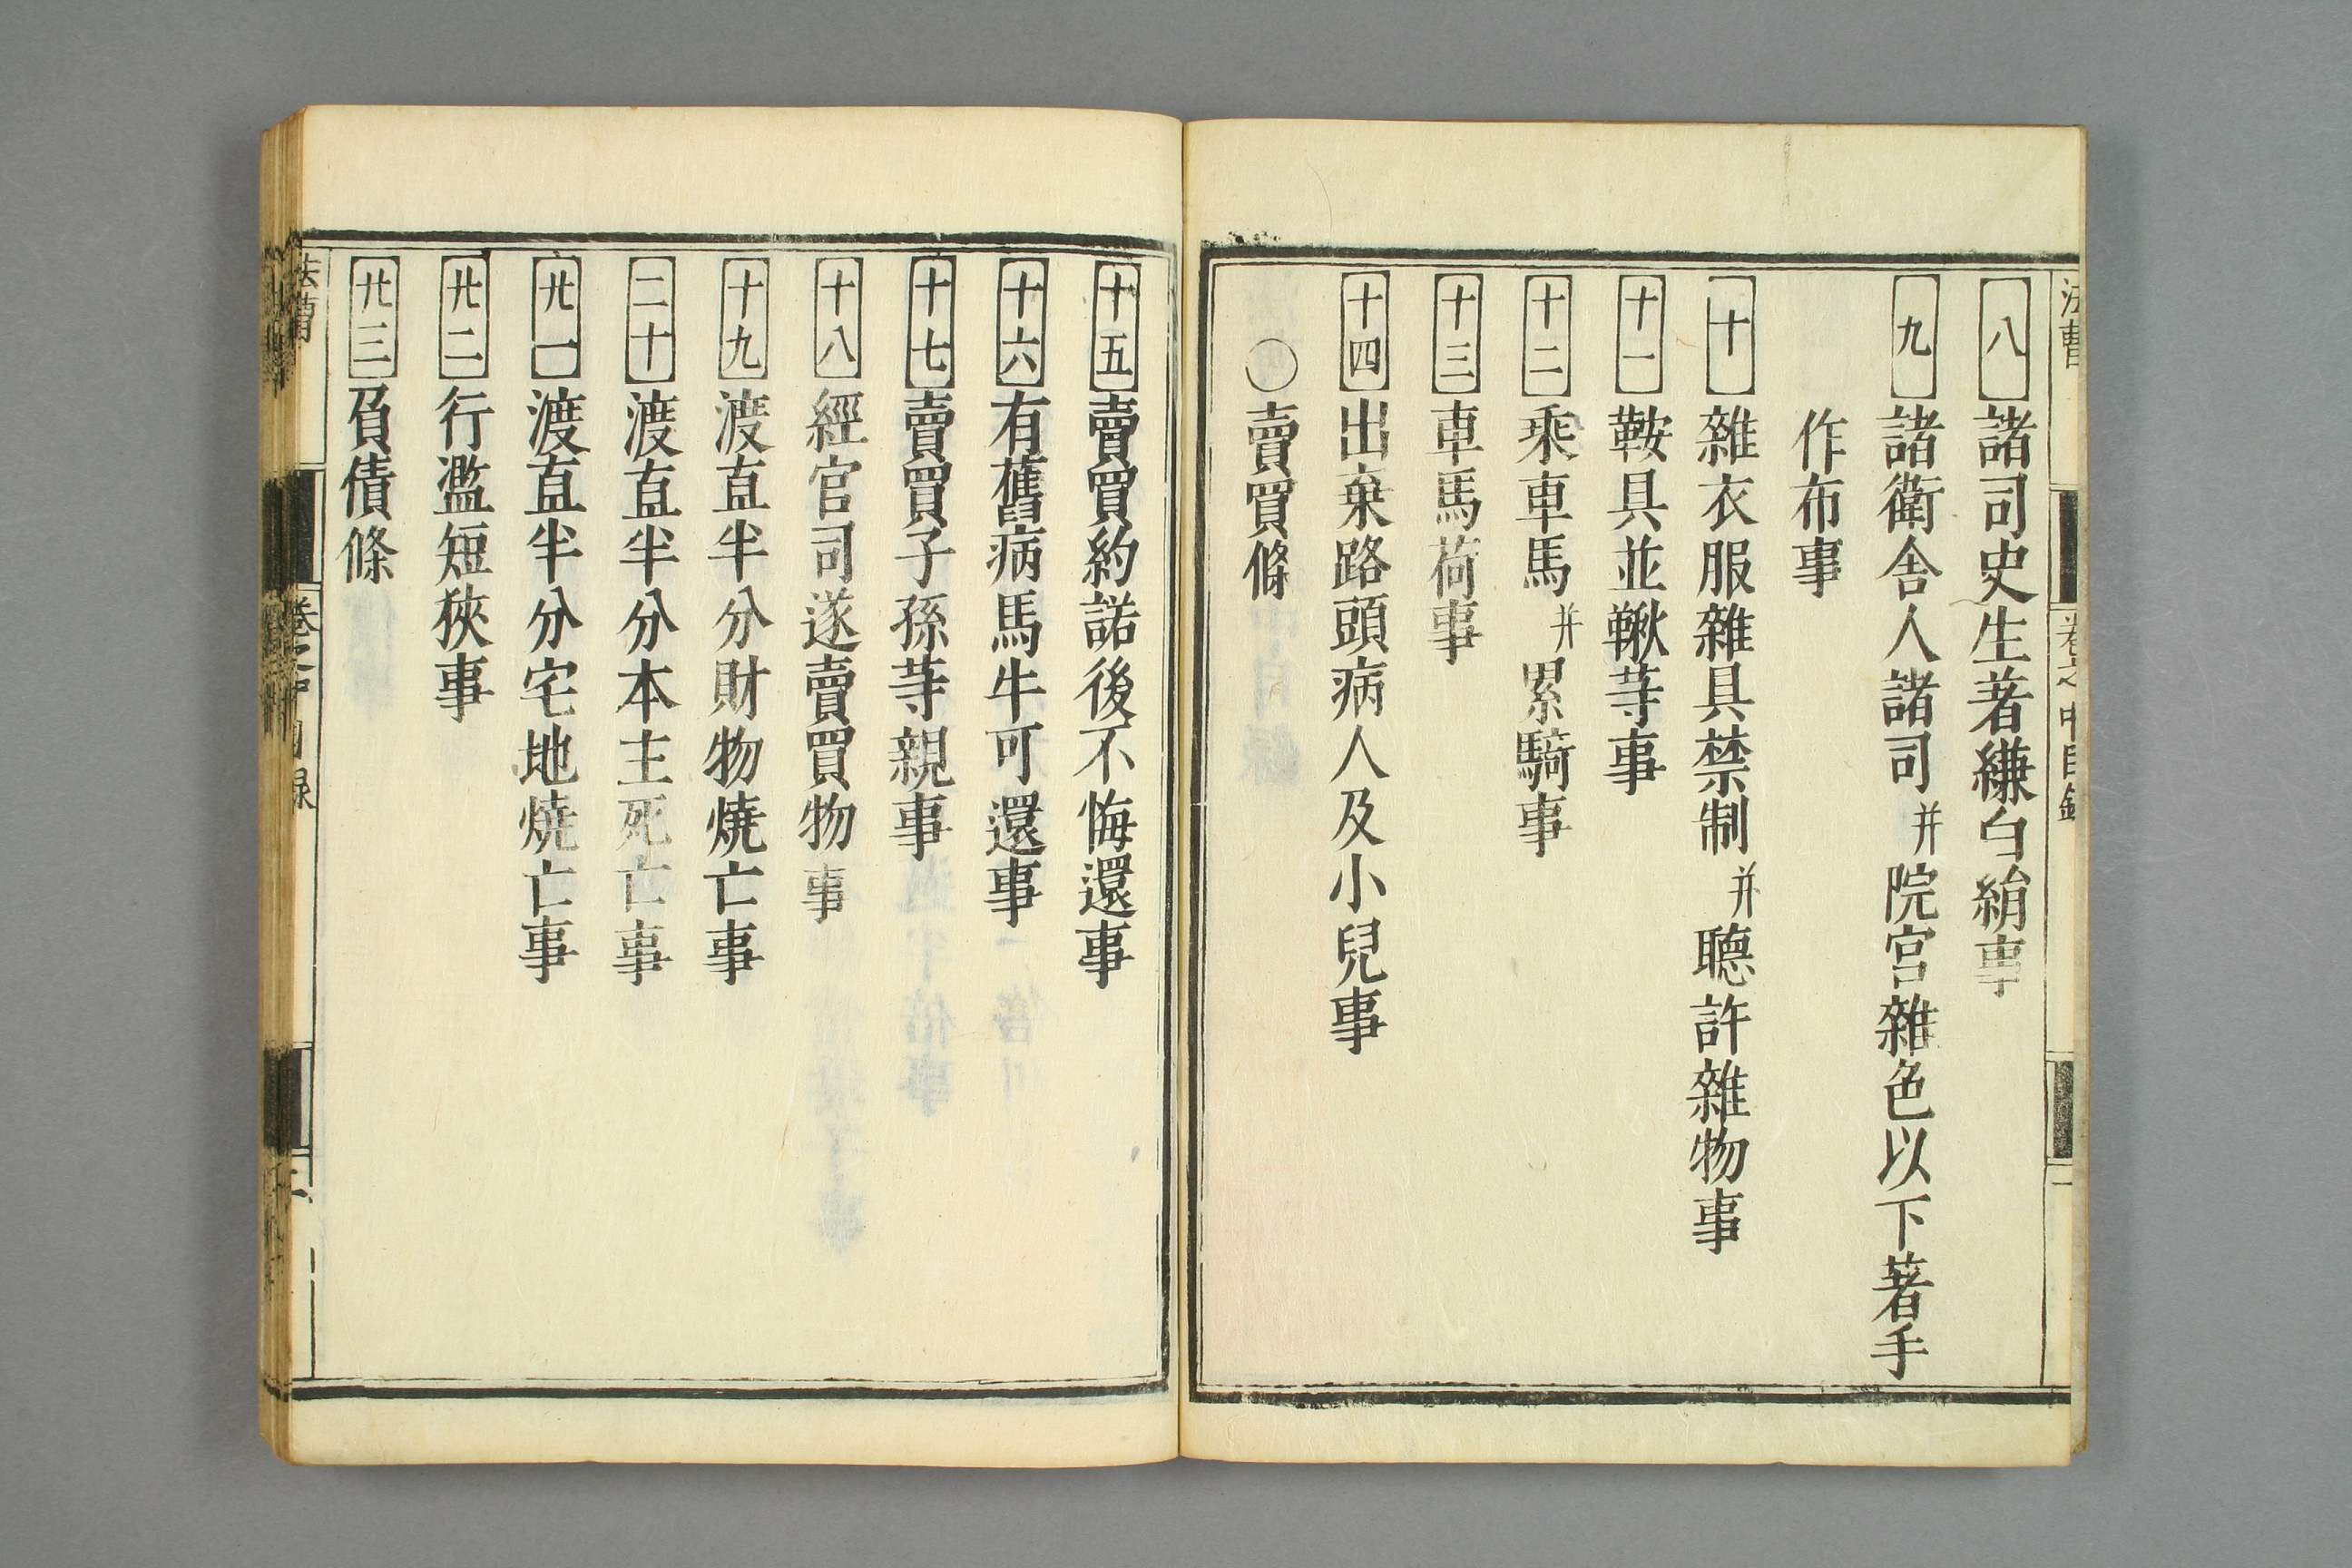 八 諸司史生著縑白絹事
九 諸衛舎人諸司并院宮雜色以下著手
作布事
十 雜衣服雜具禁制并聽許雜物事
十一 鞍具並鞦䓁事
十二 乘車馬并累騎事
十三 車馬荷事
十四 出棄路頭病人及小兒事
○賣買條
十五 賣買約諾後不悔還事
十六 有舊病馬牛可還事
十七 賣買子孫䓁親事
十八 經官司遂賣買物事
十九 渡直半分財物燒亡事
二十 渡直半分本主死亡事
廿一 渡直半分宅地燒亡事
廿二 行濫短狹事
廿三 負債條
法曹 卷之中目録